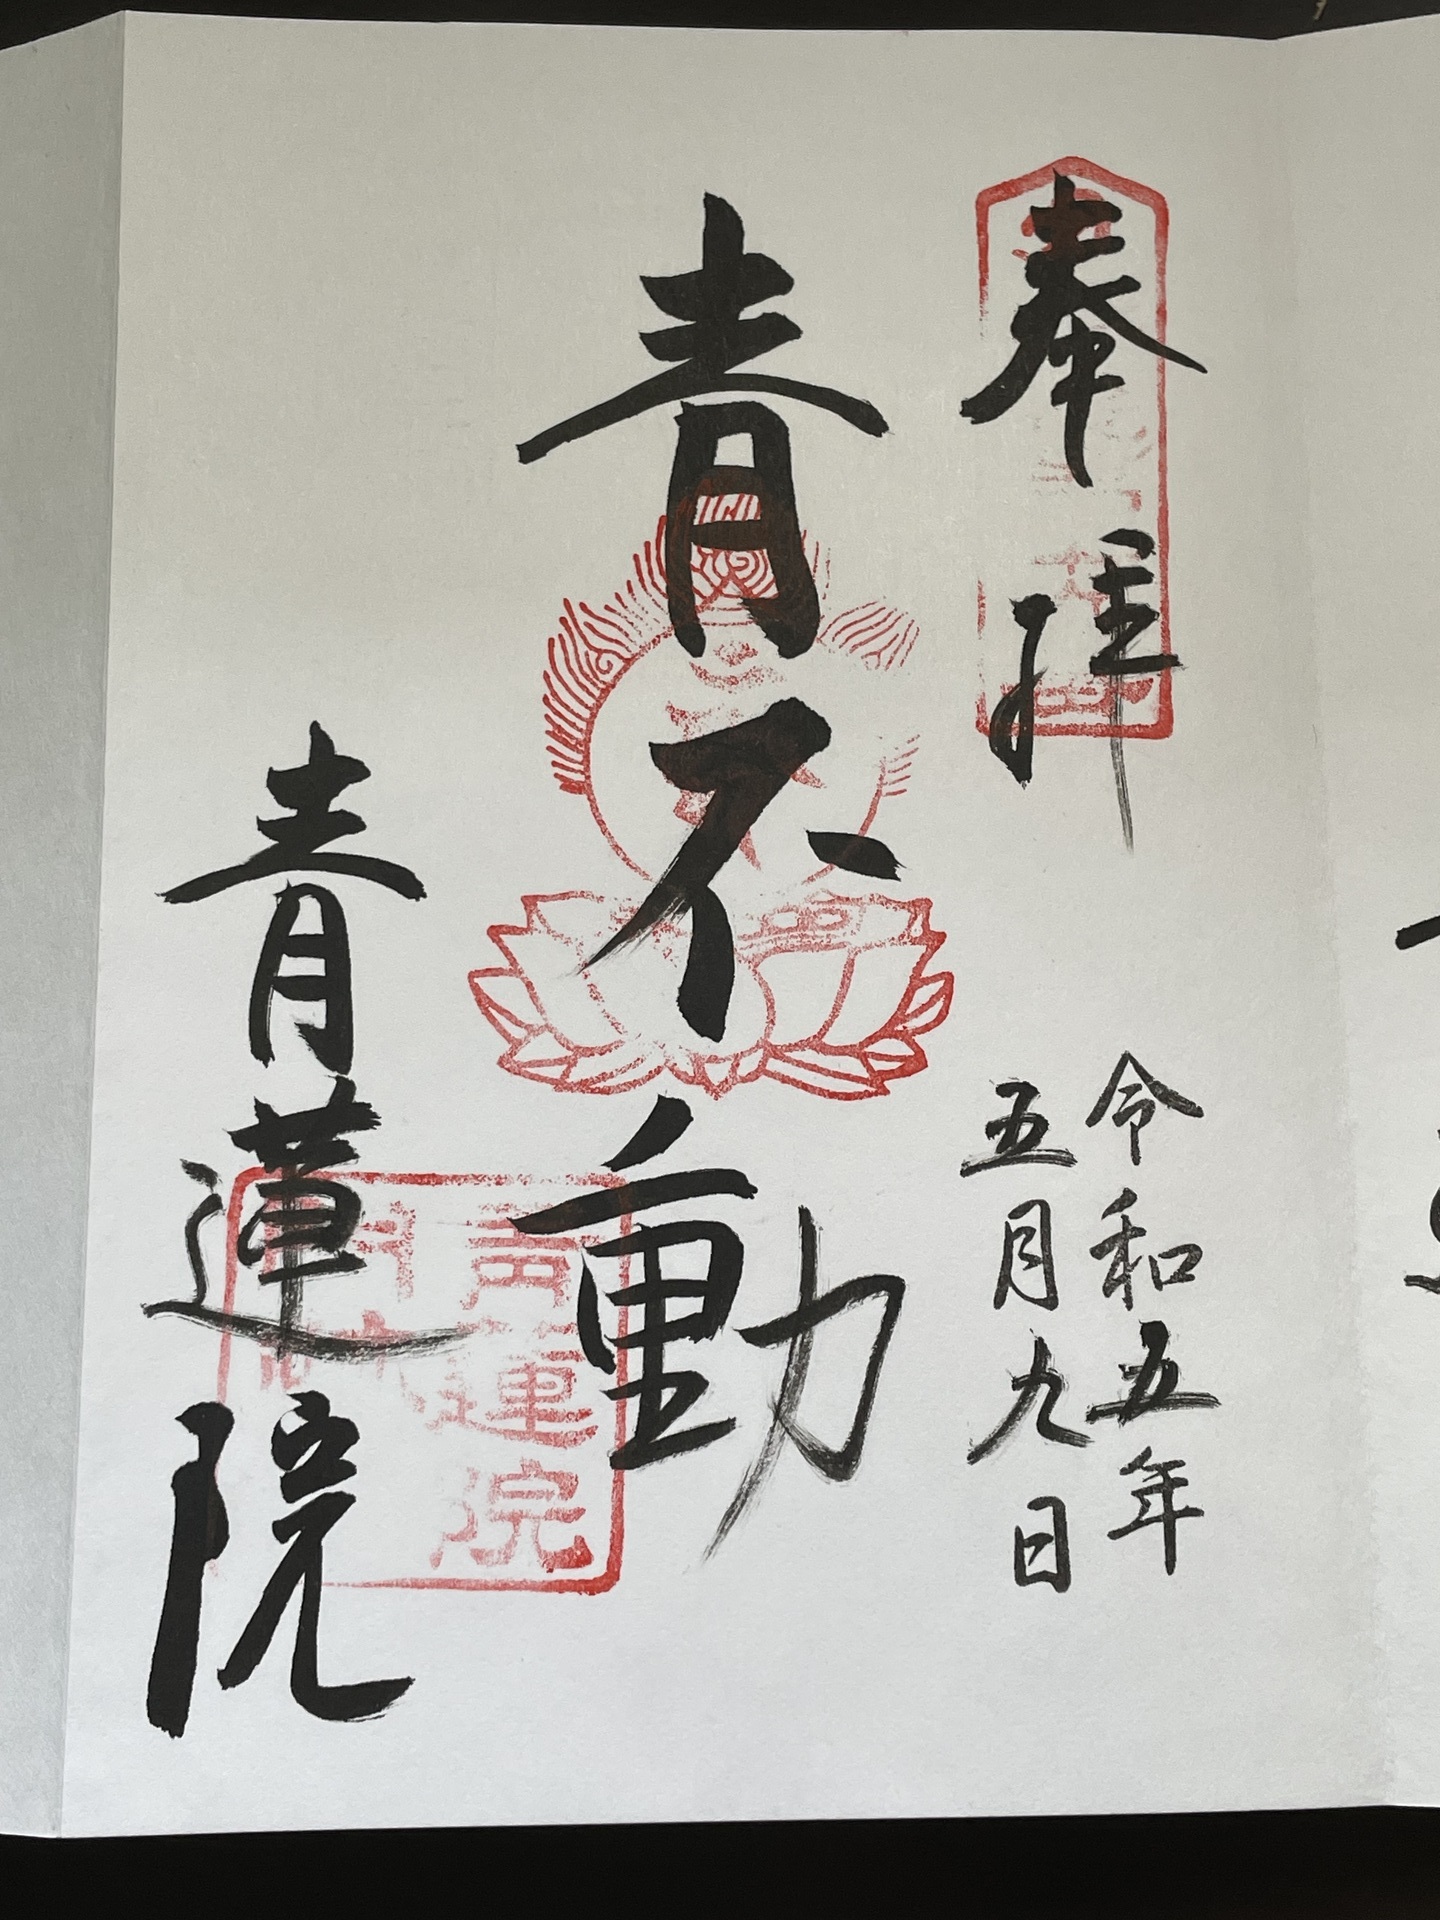 奉拝
令和五年
五月九日
青不動
青蓮院
青蓮院